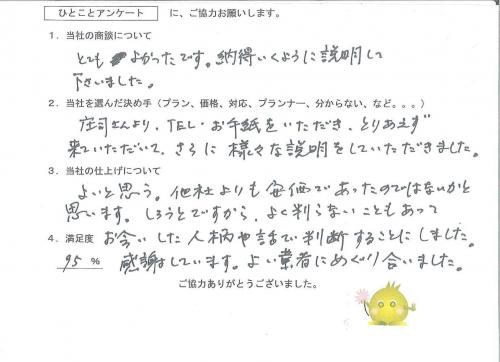 ひとことアンケート に、ご協力お願いします。
1．当社の商談について
とても よかったです。納得いくように説明して
下さいました。
2．当社を選んだ決め手（プラン、価格、対応、プランナー、分からない、など。。。）
庄司さんより、TEL・お手紙をいただき、とりあえず
来ていただいて、さらに 様々な説明をしていただきました。
3．当社の仕上げについて
よいと思う。他社よりも安価であったのではないかと
思います。しろうとですから、よく判らないこともあって
4．満足度 お会いした人柄や話で判断することにしました。
95 ％ 感謝しています。よい業者にめぐり合いました。
ご協力ありがとうございました。